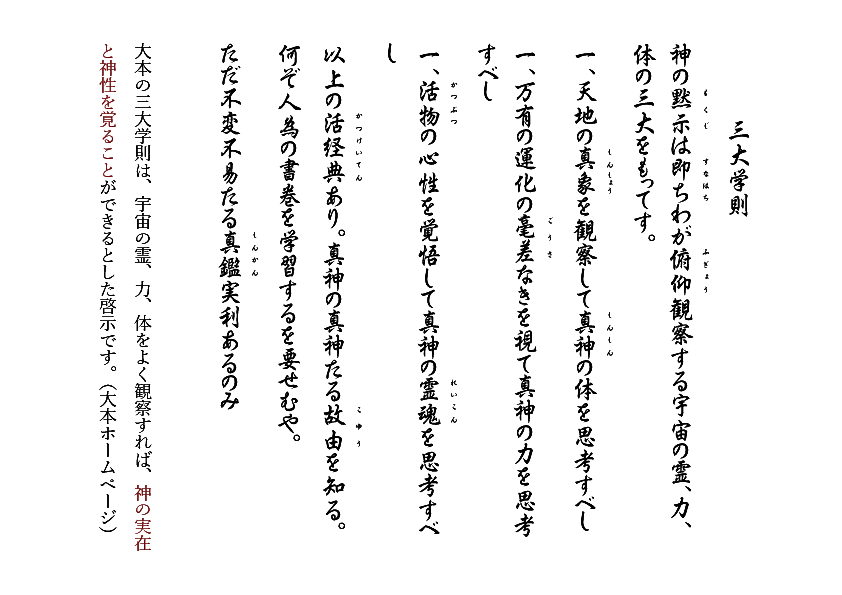 三大学則
もくじ すなはち ふぎょう
神の黙示は即ちわが俯仰観察する宇宙の霊、力、
体の三大をもってす。
しんしょう しんしん
一、天地の真象を観察して真神の体を思考すべし
ごうさ
一、万有の運化の毫差なきを視て真神の力を思考
すべし
かつぶつ れいこん
一、活物の心性を覚悟して真神の霊魂を思考すべ
し
かつけいてん こゆう
以上の活経典あり。真神の真神たる故由を知る。
何ぞ人為の書巻を学習するを要せむや。
しんかん
ただ不変不易たる真鑑実利あるのみ
大本の三大学則は、宇宙の霊、力、体をよく観察すれば、神の実在
と神性を覚ることができるとした啓示です。（大本ホームページ）